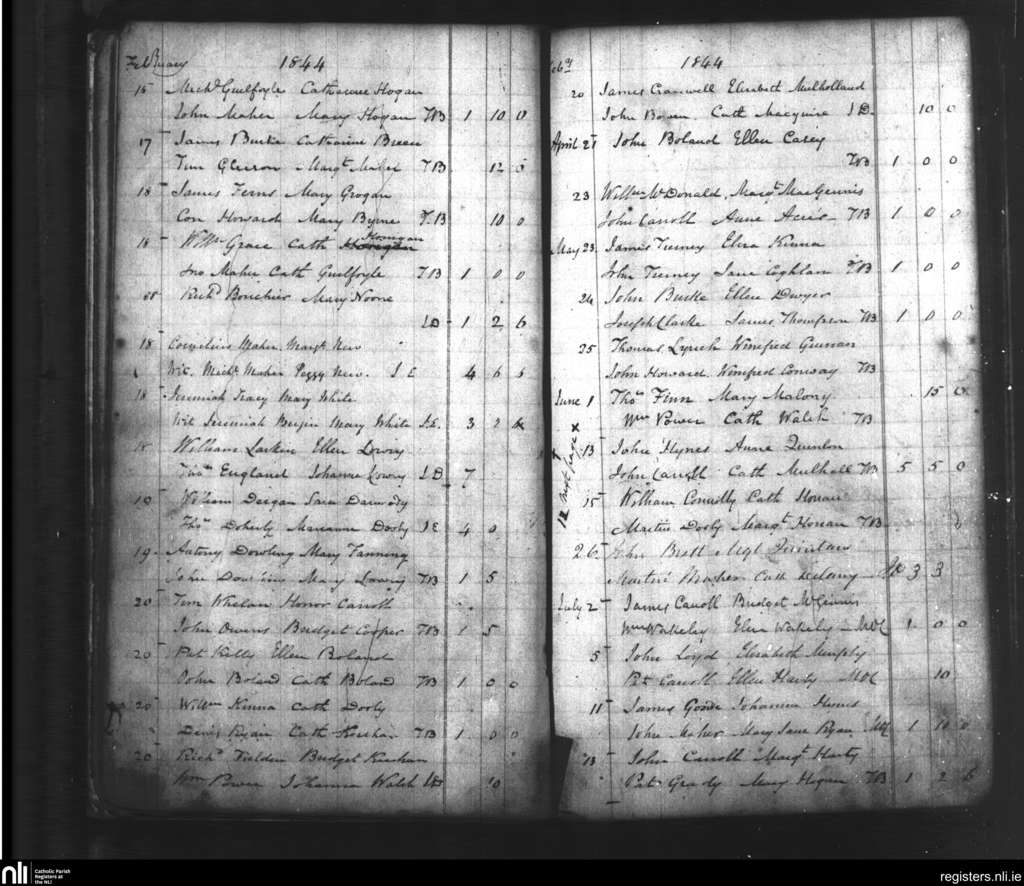 February 1844
15 Michl Guilfoyle Catharine Hogan
John Maher Mary Hogan TB 1 10 0
17 James Burke Catharine Breen
Tim Gleeson Margt Maher TB 12 6
18 James Ferns Mary Grogan
Con Howard Mary Byrne T.B 10 0
18 Willm Grace Cath Horrigan
Jno Maher Cath Guilfoyle TB 1 0 0
18 Richd Bouchier Mary Noone
I D 1 2 6
18 Cornelius Maher Margt New
Wit. Michl Maher Peggy New. J E 4 6
18 Jeremiah Tracy Mary White
Wit Jeremiah Mary White J.E. 3 2 6
William Larkin Ellen Lowry
Thos England Johanna Lowry I D 7
19 William Daegan Sara Darmody
Thos Doherty Marianne Dooly J E 4 0
19 Antony Dowling Mary Fanning
John Dowling Mary Lowry TB 1 5
20 Tim Whelan Honor Carroll
John Owens Bridget Cooper TB 1 5
20 Pat Kelly Ellen Boland
John Boland Cath Boland TB 1 0 0
20 Willm Kinna Cath Dooly
Denis Ryan Cath Keehan TB 1 0 0
20 Richd Fielden Bridget Keehan
Wm Power Johanna Walsh 10
Feby 1844
20 James Cranwell Elizabeth Mulholland
John Bowen Cath Macguire I D. 10 0
April 21 John Boland Ellen Casey
TB 1 0 0
23 Willm McDonald Margt MacGennis
John Carroll Anne Acres TB 1 0 0
May 23 James Tierney Eliza Kinna
John Tierney Jane Coghlan TB 1 0 0
24 John Burke Ellen Dwyer
Joseph Clarke James Thompson TB 1 0 0
25 Thomas Lynch Winefred Guinan
John Howard Winefred Conway TB
June 1 Thos Finn Mary Malony 15 0
Wm Power Cath Walsh TB
12 next page x
13 John Hynes Anne Quinlon
John Carroll Cath Mulhall TB 5 5 0
15 William Connolly Cath Honan
Martin Dooly Margt Honan TB
26 John Brett Mgt Quinlan
Martin Meagher Cath Delany 3 3
July 2 James Carroll Bridget McGinnis
Wm Wakely Eliza Wakely MC 1 0 0
5 John Loyd Elizabeth Murphy
Pat Carroll Ellen Harty MC 10
11 James Goode Johanna Hynes
John Maher Mary Jane Ryan MC 1 10 0
13 John Carroll Margt Harty
Pat Grady Mary Hogan TB 1 2 6
nli Catholic Parish
Registers at
the NLI
registers.nli.ie